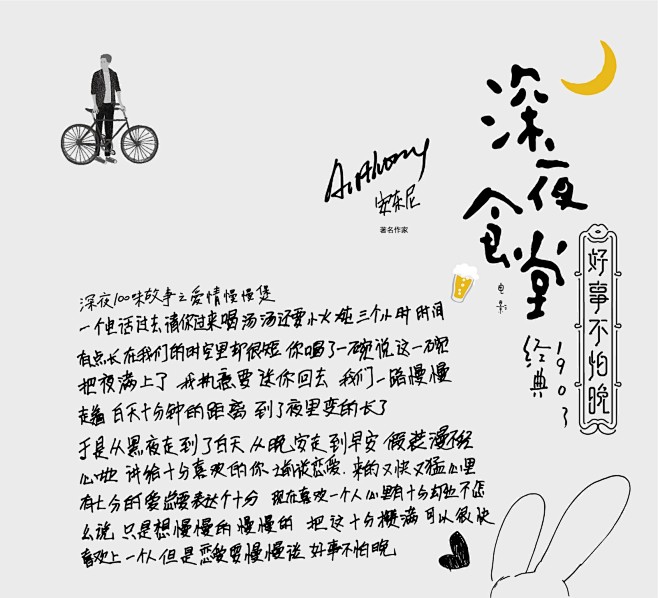 深夜食堂
电影
经典
1903
好事不怕晚
Anthony
安东尼
著名作家
深夜100味故事之爱情慢慢煲
一个电话过去 请你过来喝汤 汤还要小火炖三个小时 时间
有点长 在我们的时空里却很短 你喝了一碗 说这一碗
把夜满上了 我执意要送你回去 我们一路慢慢
走着 白天十分钟的距离 到了夜里变的长了
于是从黑夜走到了白天 从晚安走到早安 假装漫不经
心啦 讲给十分喜欢的你 谈恋爱 来的又快又猛 心里
有七分的爱总要表达个十分 现在喜欢一个人 心里有十分却也不怎
么说 只是想慢慢的 慢慢的 把这十分攒满 可以很快
喜欢上一个人 但是恋爱要慢慢谈 好事不怕晚